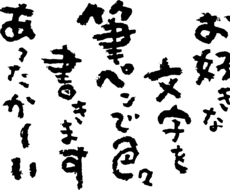 お好きな
文字を
筆ぺンで色々
書きます
あったかーい